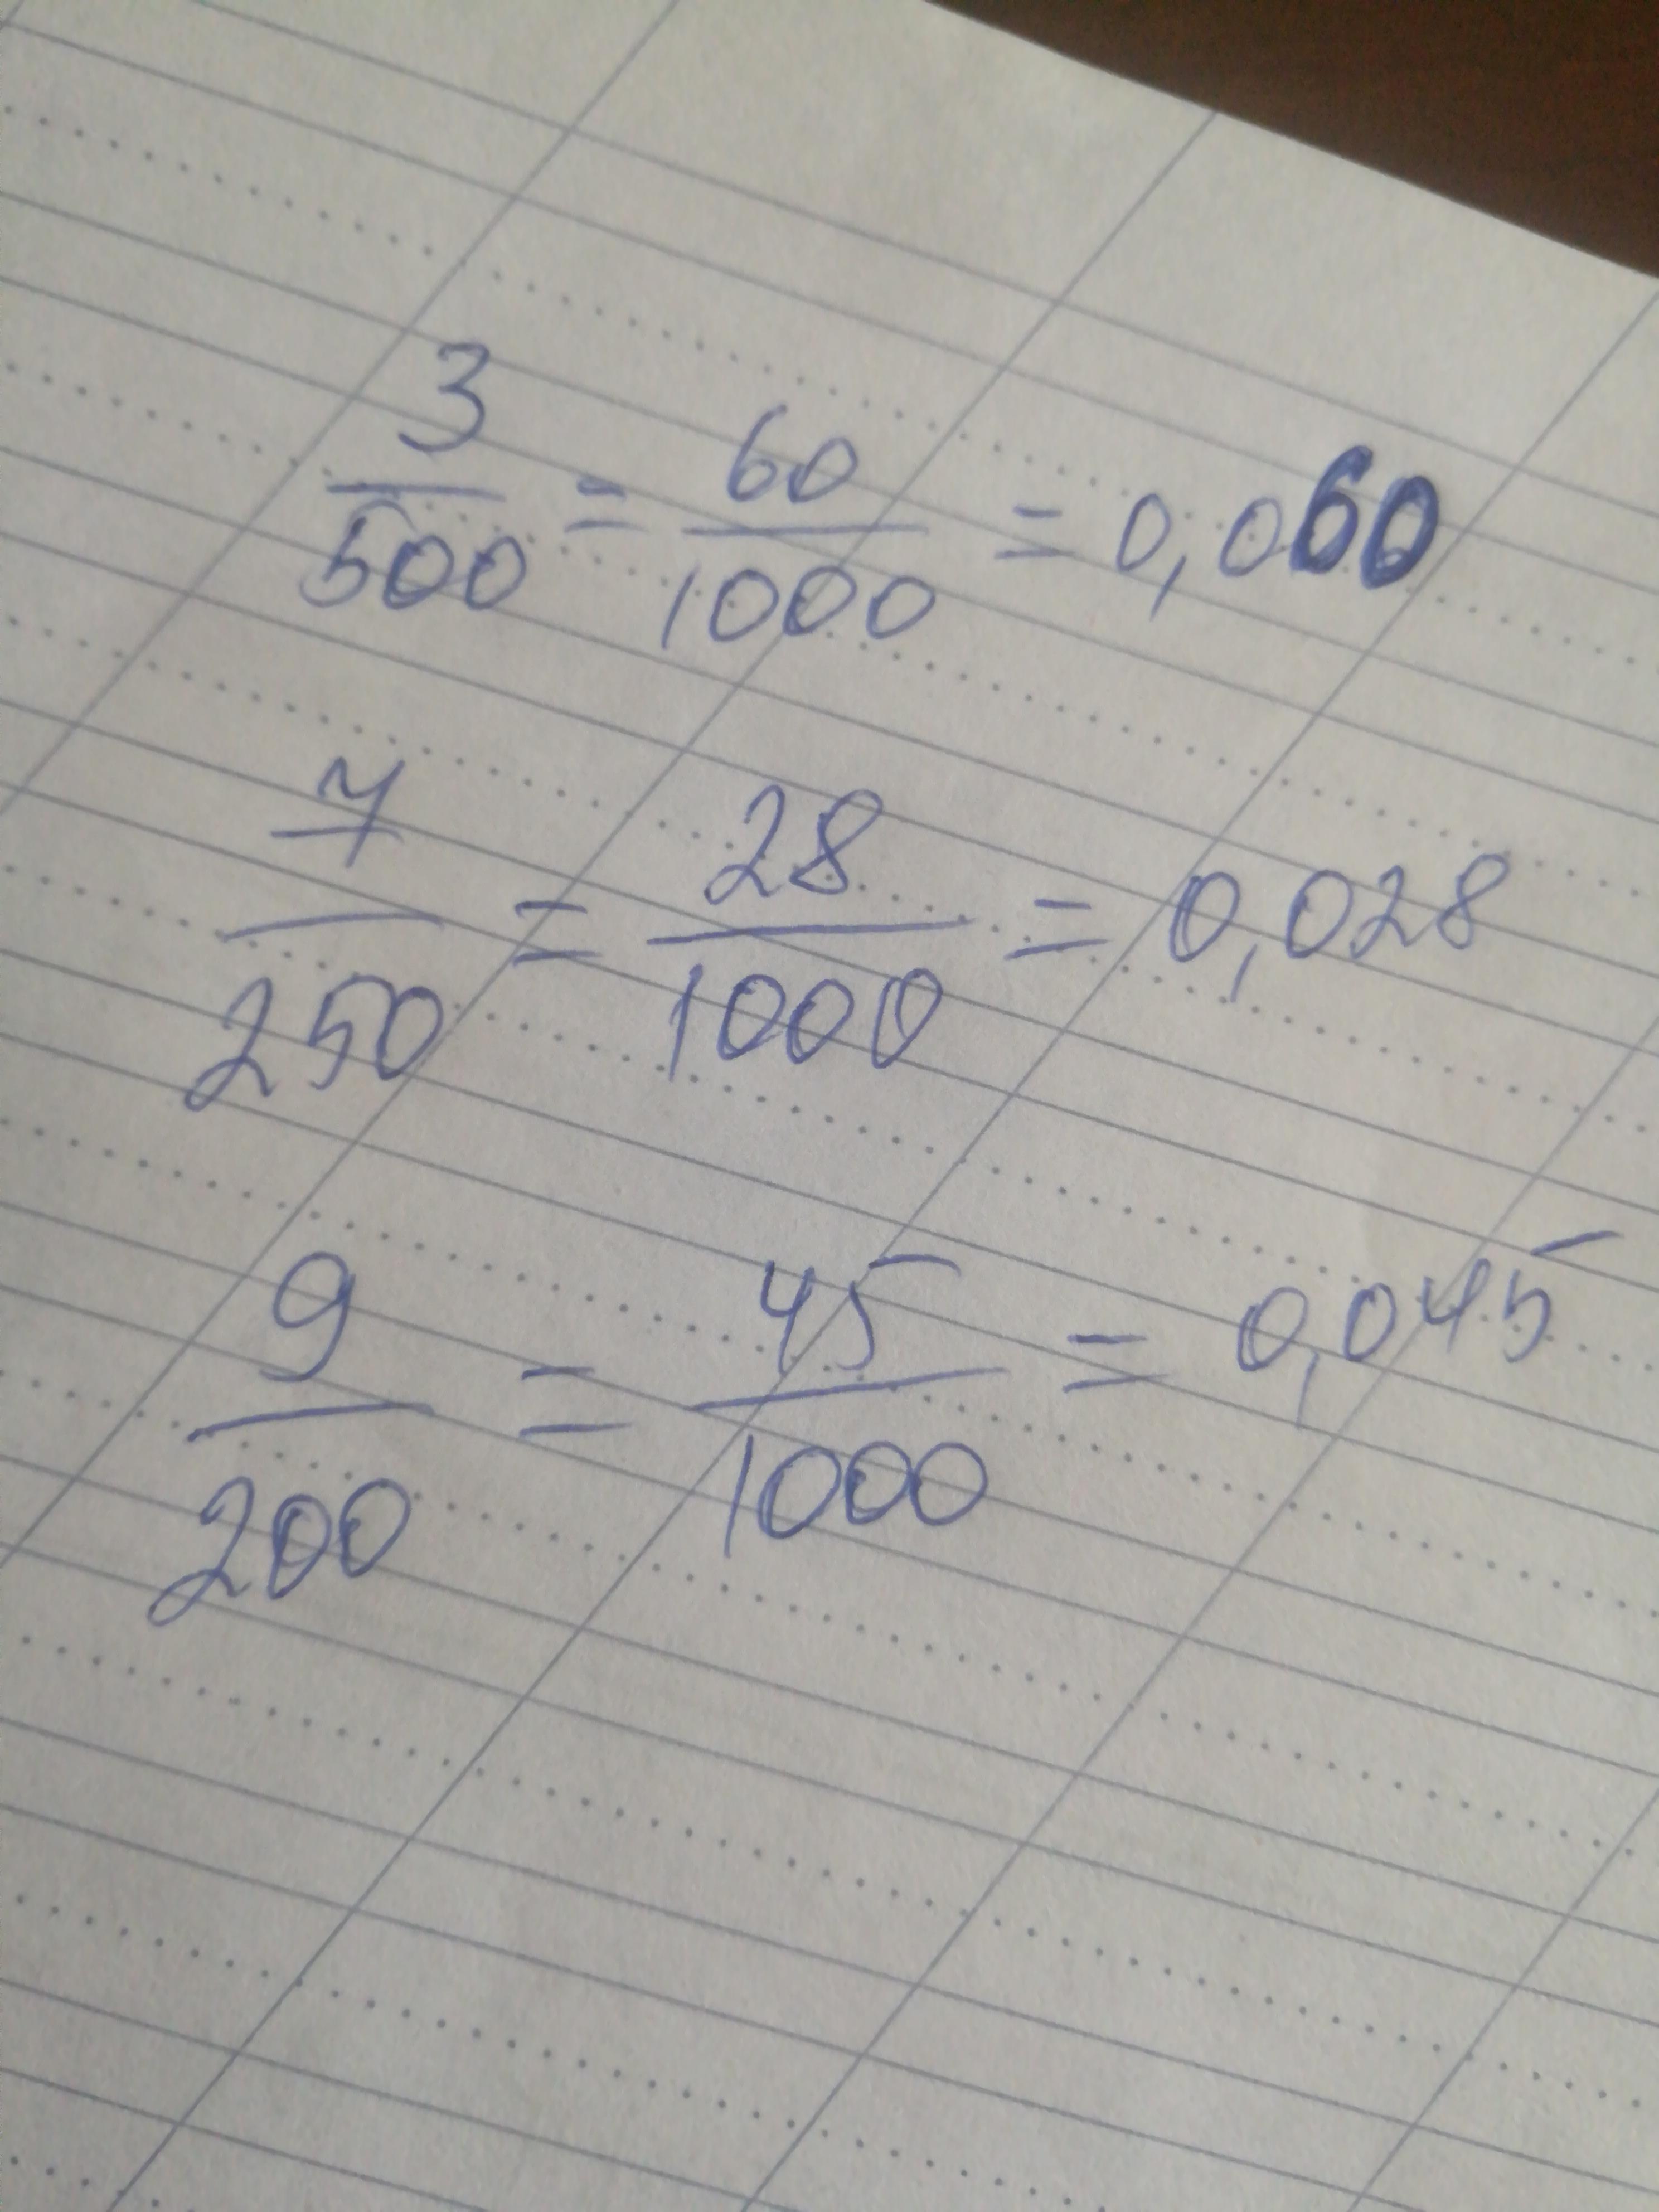 3/500 = 60/1000 = 0,060
7/250 = 28/1000 = 0,028
9/200 = 45/1000 = 0,045